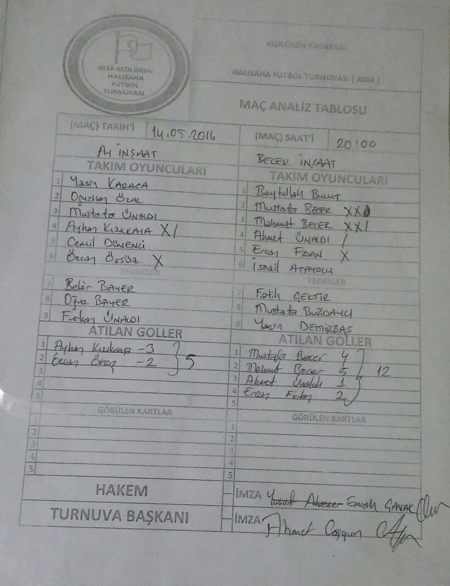 2016 KIZILÖREN
HALISAHA
FUTBOL
TURNUVASI
KIZILÖREN KASABASI
HALISAHA FUTBOL TURNUVASI ( 2016 )
MAÇ ANALİZ TABLOSU
(MAÇ) TARİH'İ 14.05.2016 (MAÇ) SAAT'İ 20:00
Ay İNŞAAT BECER İNŞAAT
TAKIM OYUNCULARI TAKIM OYUNCULARI
1 Yasin KARACA 1 Beytullah Bulut
2 Oğuzhan ÖZAL 2 Mustafa BECER XX
3 Mustafa ÜNALDI 3 Mahmut BECER XX\
4 Ayhan KIZILKAYA X\ 4 Ahmet ÜNALDI /
5 Cemil 5 Ercan FİDAN X
6 Özcan ÖKSÜZ X 6 İsmail
YEDEKLER YEDEKLER
7 Bekir BAYER 7 Fatih
8 Oğuz BAYER 8 Mustafa BUĞDAYCI
9 Furkan ÜNALDI 9 Yasin DEMİRBAŞ
ATILAN GOLLER ATILAN GOLLER
1 Ayhan Kızılkaya -3 1 Mustafa Becer 4
2 Özcan Öksüz -2 5 2 Mahmut Becer 5 12
3 3 Ahmet Ünaldı 1
4 4 Ercan Fidan 2
5 5
GÖRÜLEN KARTLAR GÖRÜLEN KARTLAR
1 1
2 2
3 3
4 4
5 5
HAKEM İMZA Yusuf Emrah
TURNUVA BAŞKANI İMZA Ahmet Coşgun